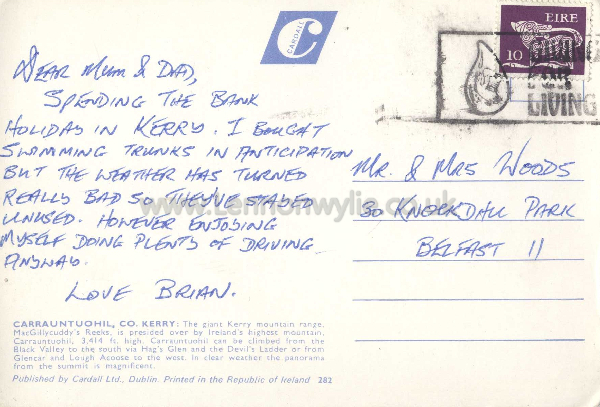 CARDALL
EIRE
10
LIVING
DEAR MUM & DAD,
SPENDING THE BANK
HOLIDAY IN KERRY. I BOUGHT
SWIMMING TRUNKS IN ANTICIPATION
BUT THE WEATHER HAS TURNED
REALLY BAD SO THEY'VE STAYED
UNUSED. HOWEVER ENJOYING
MYSELF DOING PLENTY OF DRIVING
ANYWAY.
LOVE BRIAN.
MR. & MRS WOODS
30 KNOCKDHU PARK
BELFAST 11
www.Lennonwylie.co.uk
CARRAUNTUOHIL, CO. KERRY: The giant Kerry mountain range,
MacGillycuddy's Reeks, is presided over by Ireland's highest mountain,
Carrauntuohil, 3,414 ft. high. Carrauntuohil can be climbed from the
Black Valley to the south via Hag's Glen and the Devil's Ladder or from
Glencar and Lough Acoose to the west. In clear weather the panorama
from the summit is magnificent.
Published by Cardall Ltd., Dublin. Printed in the Republic of Ireland 282